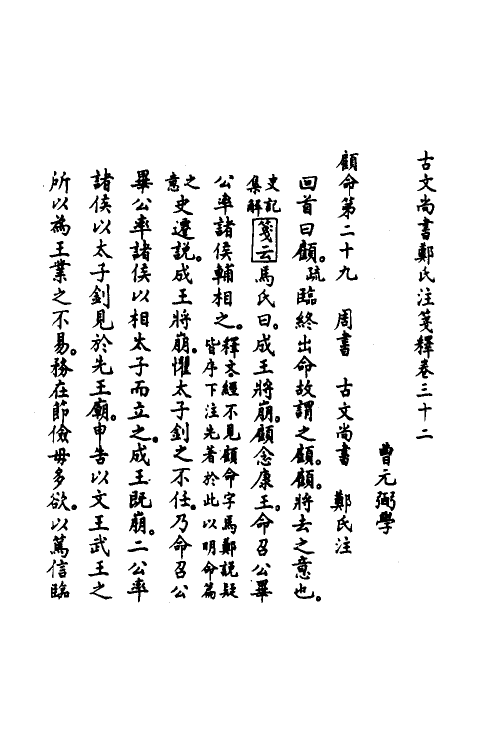 古文尚書鄭氏注箋釋卷三十二
曹元弼學
顧命第二十九 周書 古文尚書 鄭氏注
回首曰顧。疏臨終出命故謂之顧。顧。將去之意也。
史記集解箋云馬氏曰。成王將崩。顧念康王。命召公畢
公率諸侯輔相之。釋文經不見顧命字馬鄭說疑皆序下注先著於此以明命篇
之意史遷說。成王將崩。懼太子釗之不任。乃命召公
畢公率諸侯以相太子而立之。成王既崩。二公率
諸侯以太子釗見於先王廟。申告以文王武王之
所以為王業之不易。務在節儉毋多欲。以篤信臨